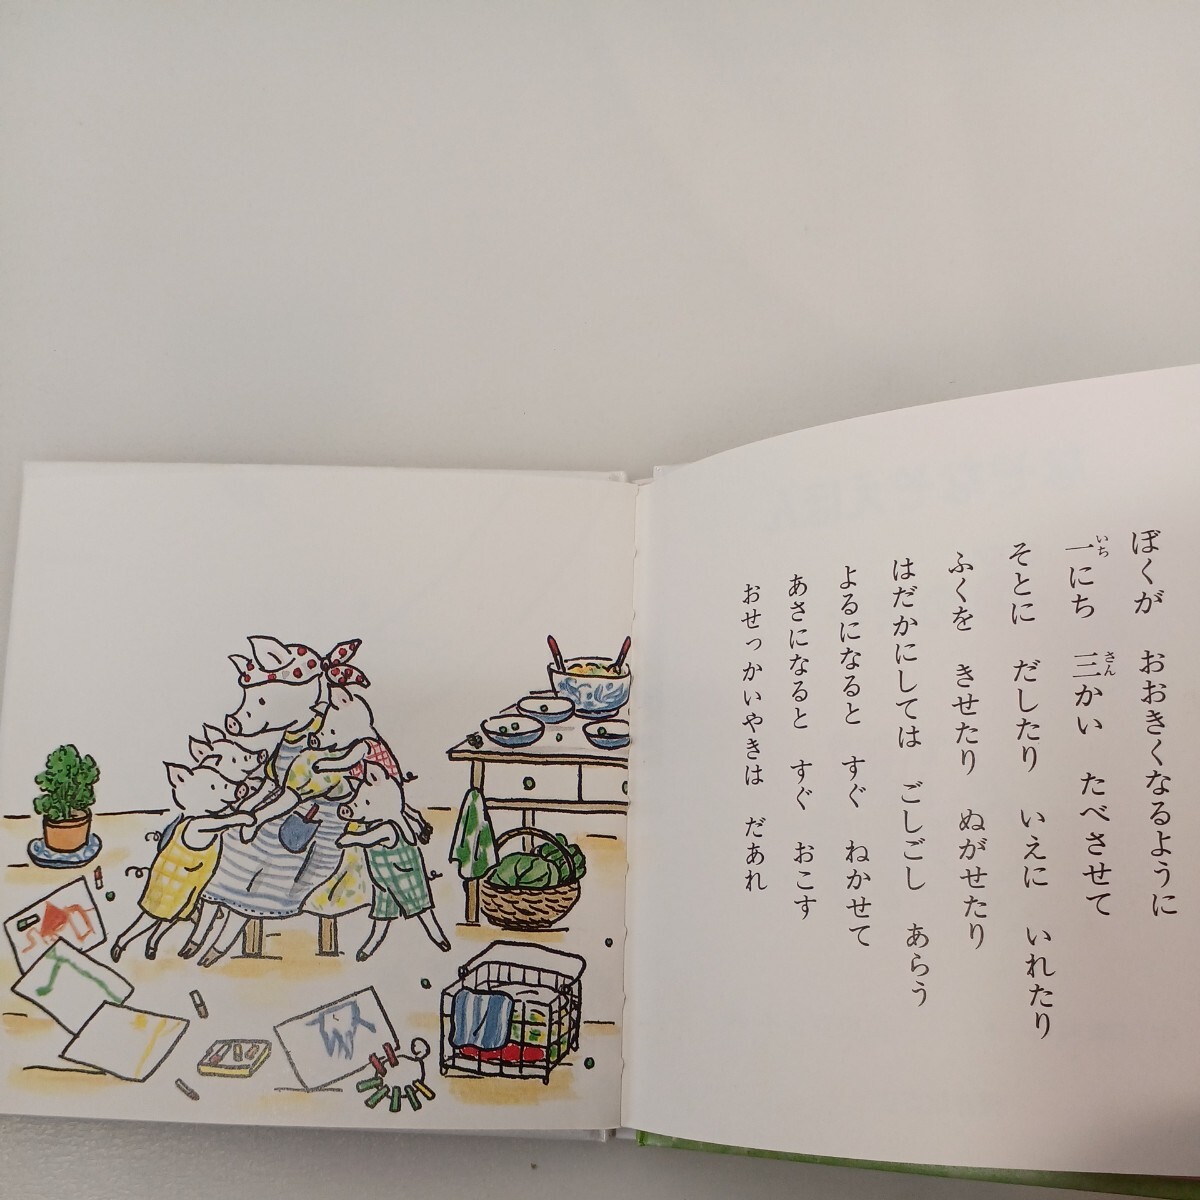 ぼくが　おおきくなるように
一にち　三かい　たべさせて
そとに　だしたり　いえに　いれたり
ふくを　きせたり　ぬがせたり
はだかにしては　ごしごし　あらう
よるになると　すぐ　ねかせて
あさになると　すぐ　おこす
おせっかいやきは　だあれ
いち
さん